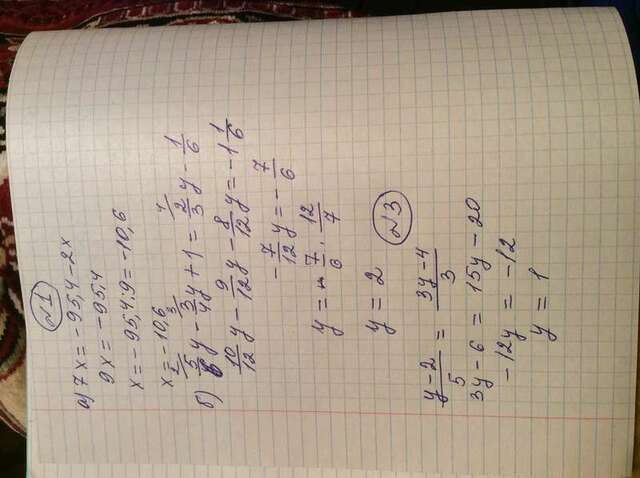 №1
а) 7x = -95,4 - 2x
9x = -95,4
x = -95,4 : 9 = -10,6
x = -10,6
2/ 3/ 4/
б) 5/6 y - 3/4 y + 1 = 2/3 y - 1/6
10/12 y - 9/12 y - 8/12 y = -1 1/6
- 7/12 y = - 7/6
y = - 7/6 · 12/7
y = 2
№3
y-2/5 = 3y-4/3
3y - 6 = 15y - 20
-12y = -12
y = 1